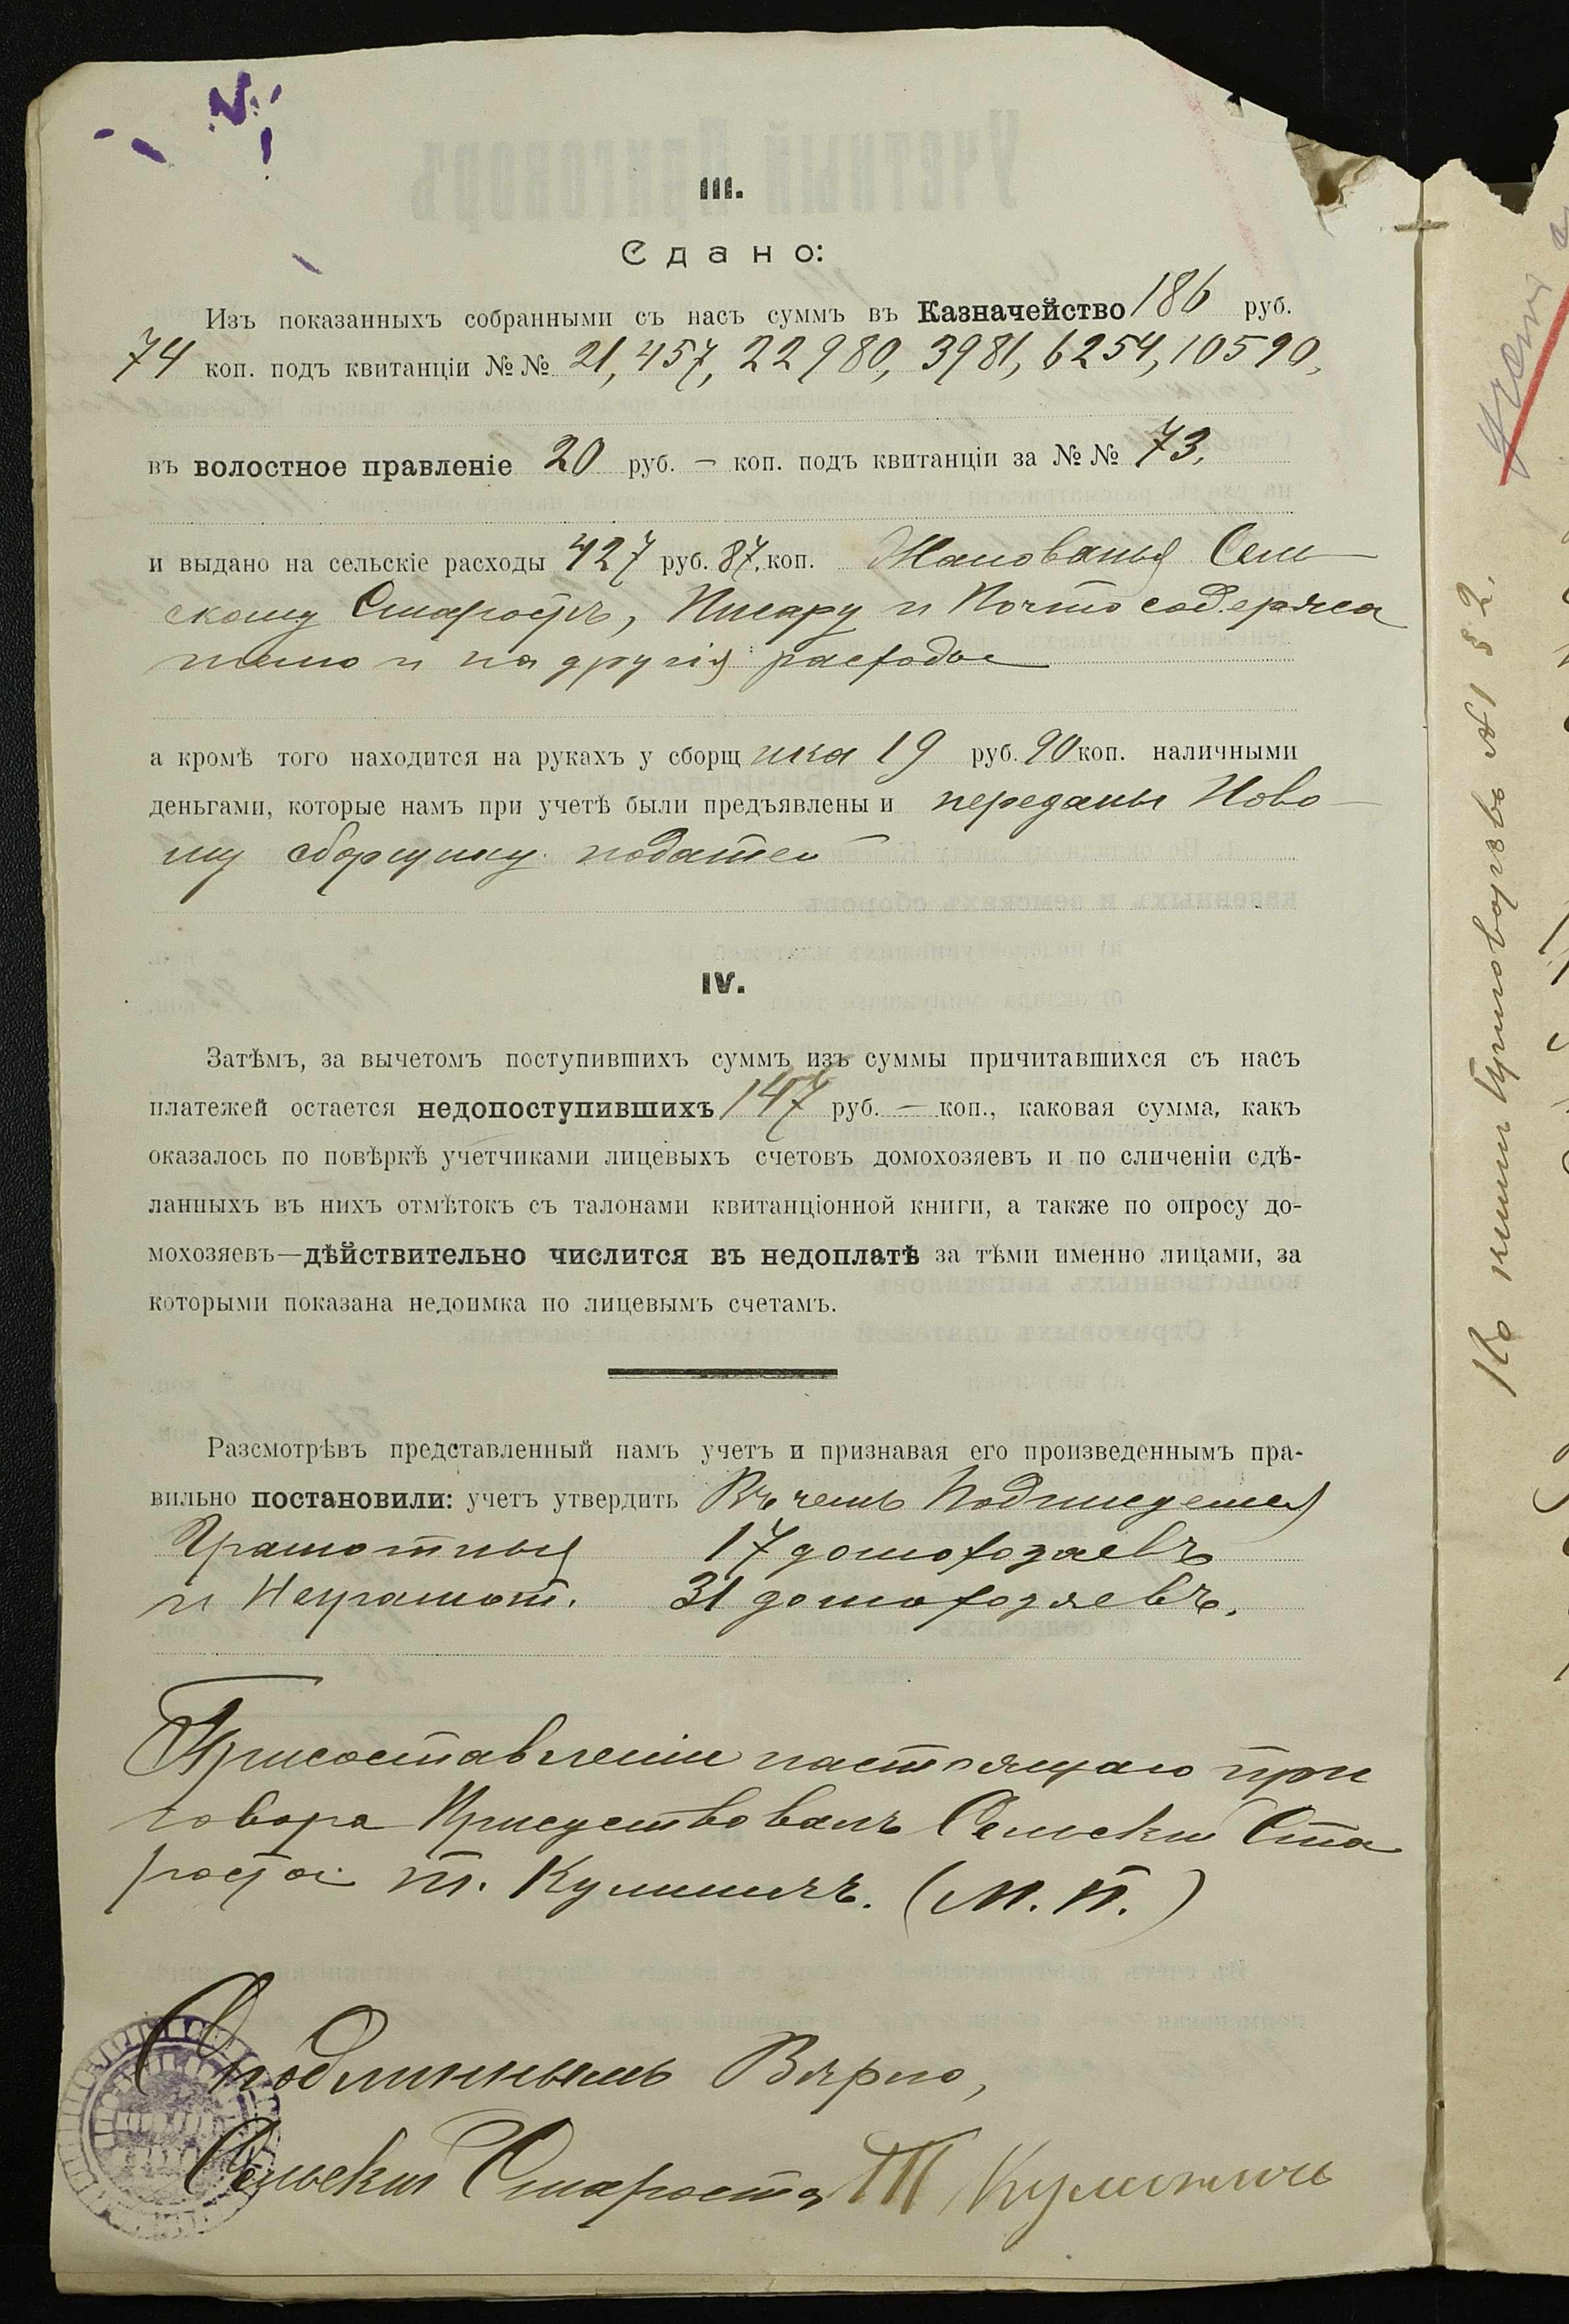 III.
Сдано:
Изъ показанныхъ собранными съ насъ суммъ въ Казначейство 186 руб.
74 коп. подъ квитанціи №№ 21,457, 22980, 3981, 6254, 10590,
въ волостное правленіе 20 руб. — коп. подъ квитанціи за №№ 73,
и выдано на сельскіе расходы 427 руб. 87, коп. Жалованья Сель
скому Старостѣ, Писару и Почто содержа
телю и на другія расходы
а кромѣ того находится на рукахъ у сборщ ика 19 руб. 90 коп. наличными
деньгами, которые намъ при учетѣ были предъявлены и переданы Ново
му сборщику податей
IV.
Затѣмъ, за вычетомъ поступившихъ суммъ изъ суммы причитавшихся съ насъ
платежей остается недопоступившихъ 147 руб. — коп., каковая сумма, какъ
оказалось по повѣркѣ учетчиками лицевыхъ счетовъ домохозяевъ и по сличеніи сдѣ-
ланныхъ въ нихъ отмѣтокъ съ талонами квитанціонной книги, а также по опросу до-
мохозяевъ—дѣйствительно числится въ недоплатѣ за тѣми именно лицами, за
которыми показана недоимка по лицевымъ счетамъ.
Разсмотрѣвъ представленный намъ учетъ и признавая его произведеннымъ пра-
вильно постановили: учетъ утвердить Въ чемъ Подписуемся
Грамотныя 17 домохозаевъ
и Неграмот. 31 домохозяевъ.
Присоставленіи настоящаго при
говора Присуствовалъ Сельски Ста
роста Т. (М. П.)
С подлиннымъ Вярно,
Сельски Староста Т
Ко книги Приговоровъ № 1 § 2.